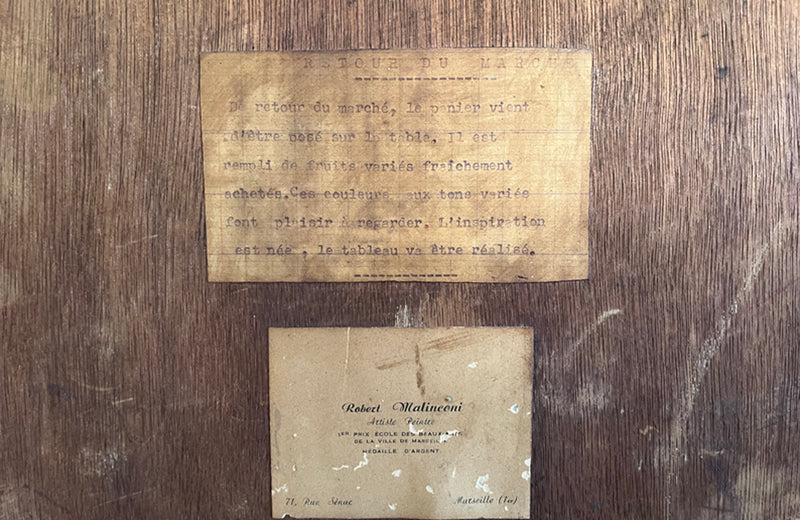 RETOUR DU MARCHE
De retour du marché, le panier vient
d'être posé sur la table, Il est
rempli de fruits variés fraîchement
achetés.Ces couleurs aux tons variés
font plaisir à regarder. L'inspiration
est née , le tableau va être réalisé.
Robert Malinconi
Artiste Peintre
1ER PRIX ÉCOLE DES BEAUX-ARTS
DE LA VILLE DE MARSEILLE
MÉDAILLE D'ARGENT
71, Rue Sénac
Marseille (1er)